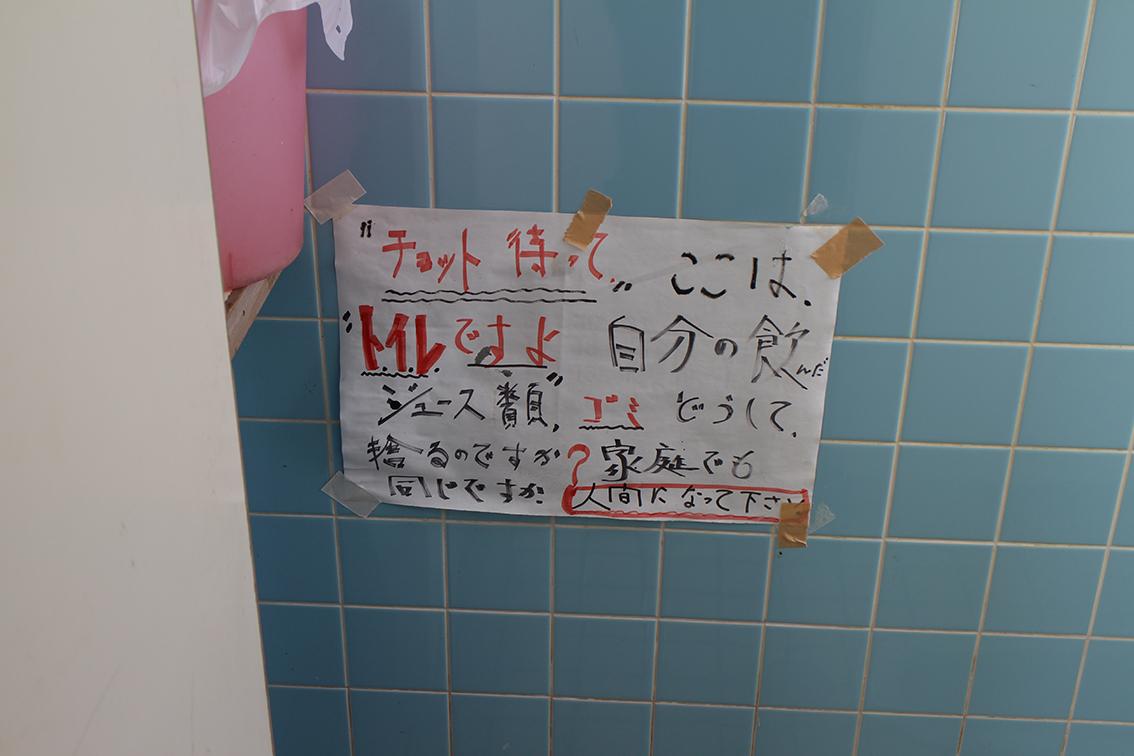 "チョット 待って" ここは、
"トイレですよ" 自分の飲んだ
ジュース類、ゴミ どうして、
捨るのですか? 家庭でも
同じですか 人間になって下さい